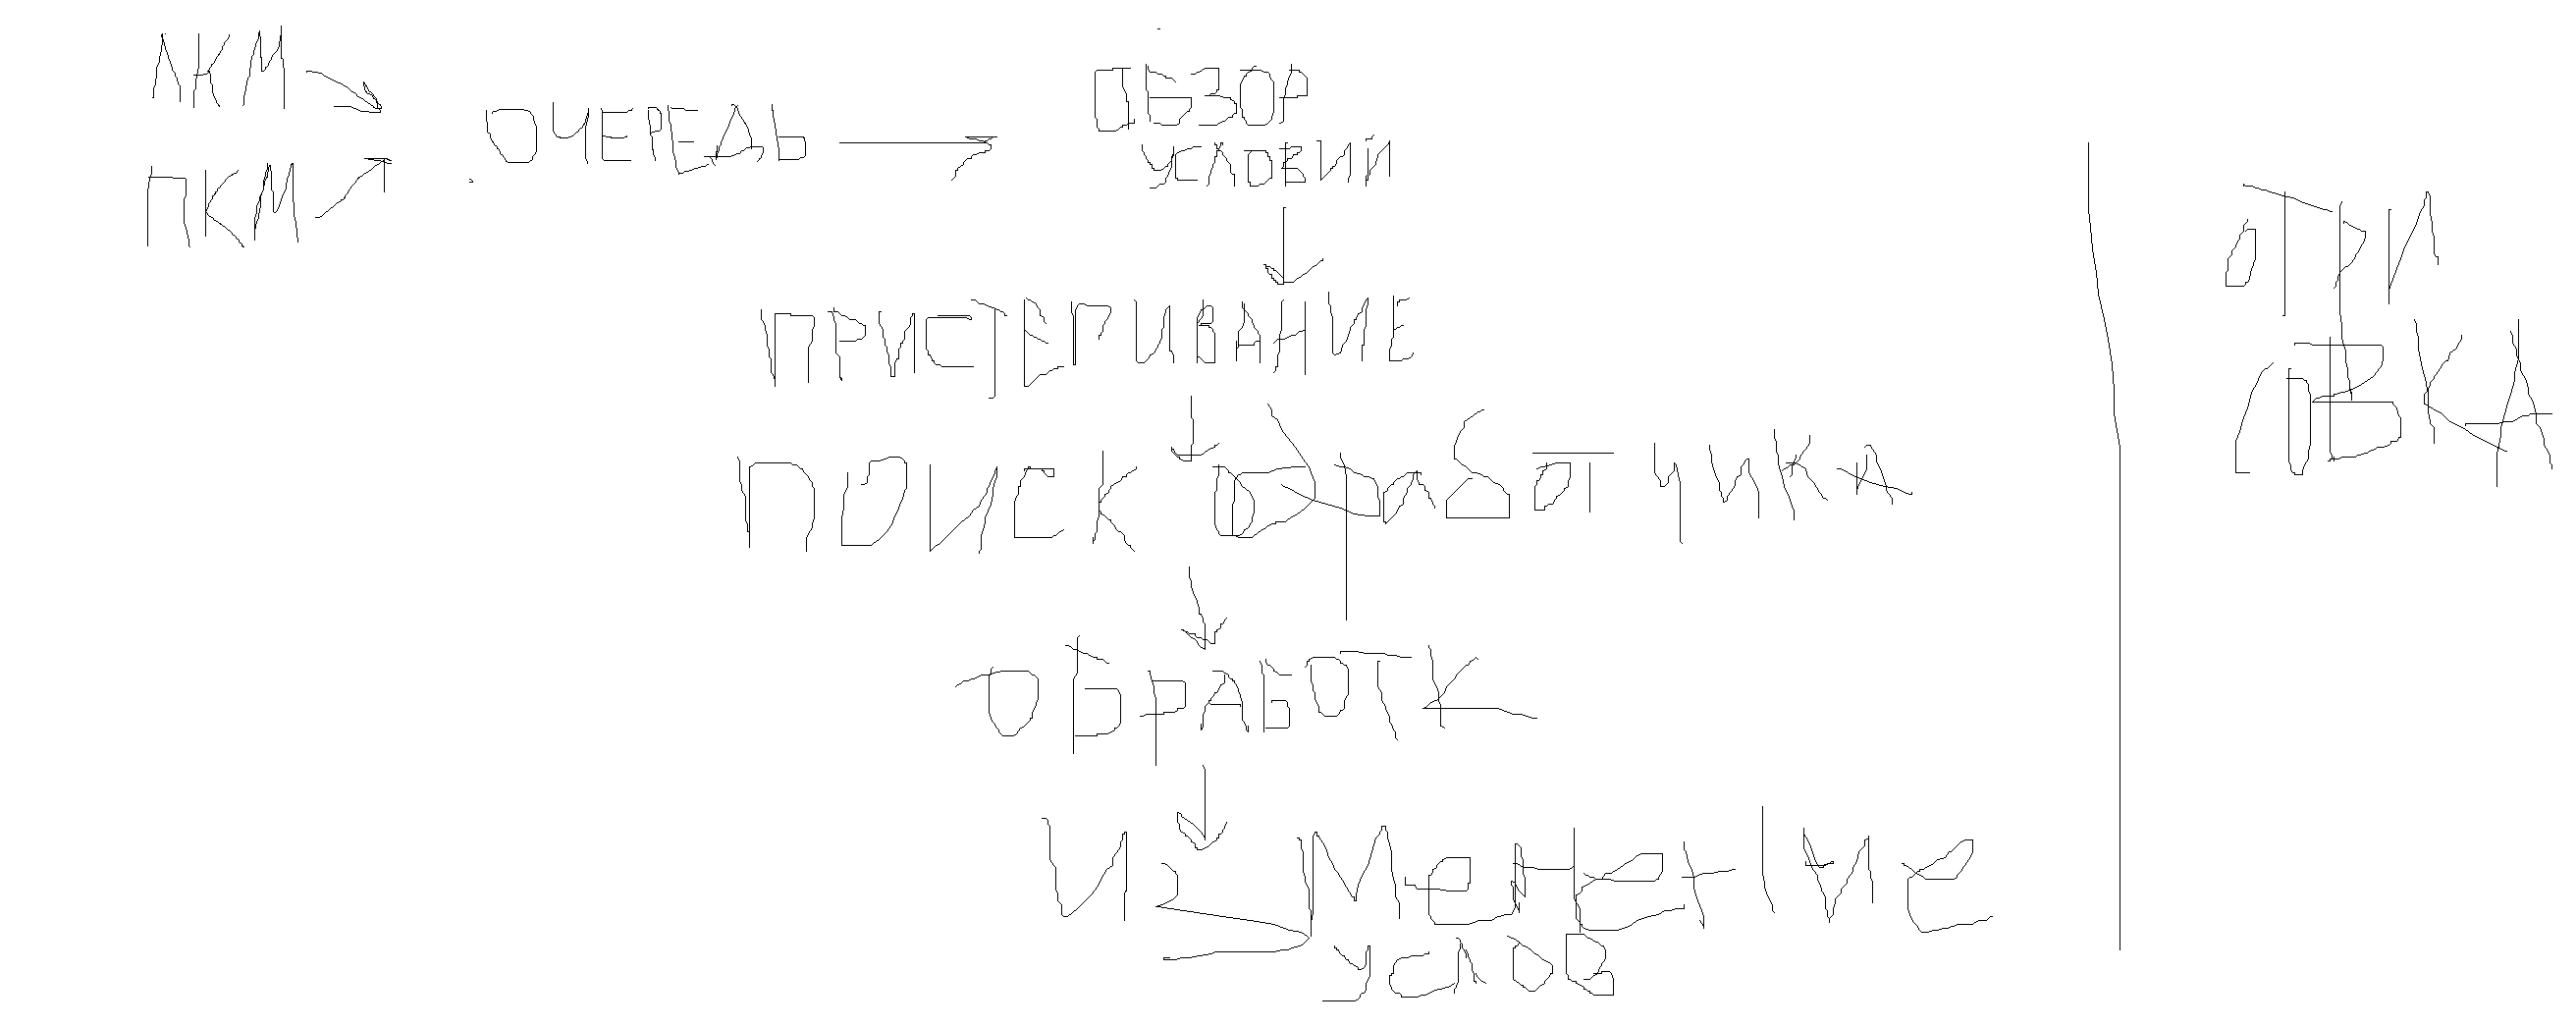 ЛКМ
ПКМ
ОЧЕРЕДЬ
ОБЗОР
УСЛОВИЙ
ПРИСТЕГИВАНИЕ
ПОИСК обработчика
ОБРАБОТК
Изменение
услов
ОТРИ
СОВКА